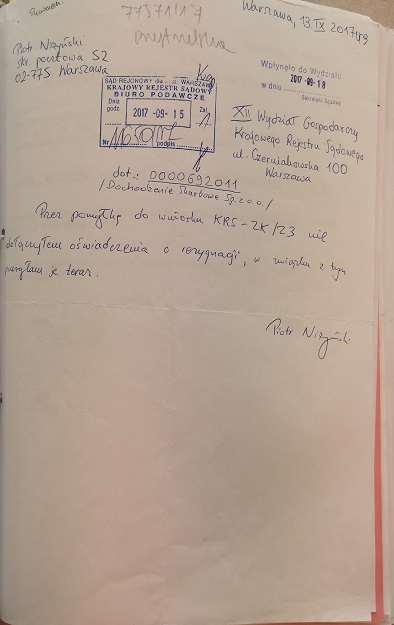 Warszawa, 13.IX 2017r.
77571/17
Piotr Niżyński
skr. pocztowa 52
02-775 Warszawa
SĄD REJONOWY dla m.st. WARSZAWY
KRAJOWY REJESTR SĄDOWY
BIURO PODAWCZE
Dnia
godz.
2017 -09- 15
Zał.
1
Nr
podpis
Wpłynęło do Wydziału
w dniu 2017 -09- 18
Sekretarz Sądowy
XII Wydział Gospodarczy
Krajowego Rejestru Sądowego
ul. Czerniakowska 100
Warszawa
dot.: 0000692011
/Dochodzenie Skarbowe Sp. z o.o./
Przez pomyłkę do wniosku KRS-ZK/Z3 nie
dołączyłem oświadczenia o rezygnacji, w związku z tym
przesyłam je teraz.
Piotr Niżyński